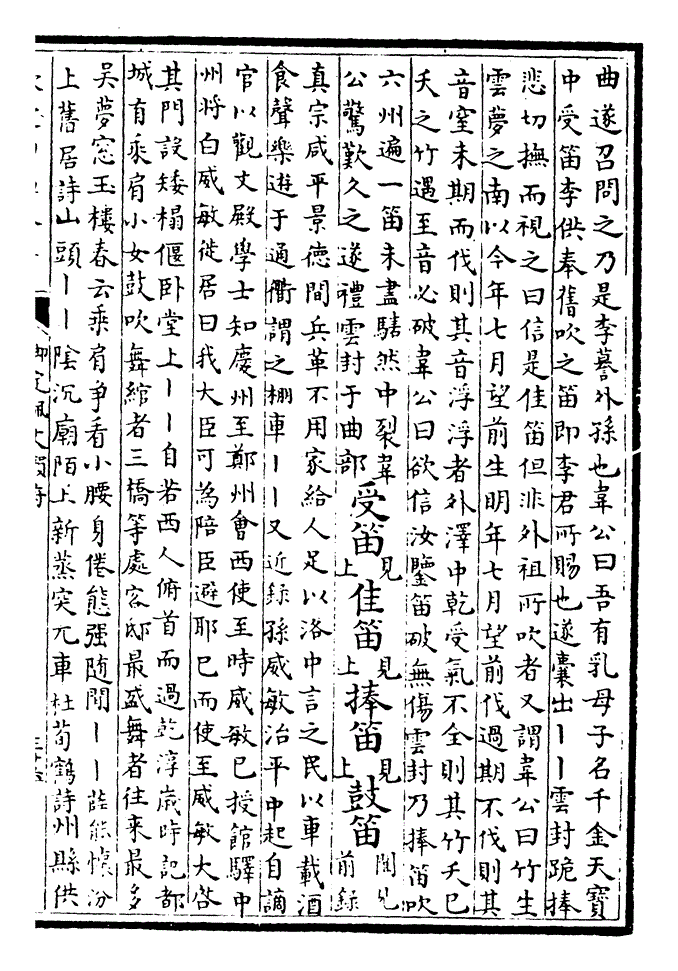 曲遂召問之乃是李謩外孫也韋公曰吾有乳母子名千金天寶
中受笛李供奉舊吹之笛即李君所賜也遂囊出丨丨雲封跪捧
悲切撫而視之曰信是佳笛但非外祖所吹者又謂韋公曰竹生
雲夢之南以今年七月望前生明年七月望前伐過期不伐則其
音窒未期而伐則其音浮浮者外澤中乾受氣不全則其竹夭已
夭之竹遇至音必破韋公曰欲信汝鑒笛破無傷雲封乃捧笛吹
六州遍一笛未盡騞然中裂韋
公驚歎久之遂禮雲封于曲部
受笛見上佳笛見上捧笛見上鼓笛聞見前錄
真宗咸平景德間兵革不用家給人足以洛中言之民以車載酒
食聲樂遊于通衢謂之棚車丨丨又近錄孫威敏治平中起自謫
官以觀文殿學士知慶州至鄭州會西使至時威敏已授館驛中
州將白威敏徙居曰我大臣可為陪臣避耶已而使至威敏大啓
其門設矮榻偃卧堂上丨丨自若西人俯首而過乾淳歲時記都
城有乘肩小女鼓吹舞綰者三橋等處客邸最盛舞者往來最多
吳夢窓玉樓春云乘肩爭看小腰身倦態強随閒丨丨薛能懷汾
上舊居詩山頭丨丨陰沉廟陌上新蒸突兀車杜荀鶴詩州縣供
御定佩文韻府